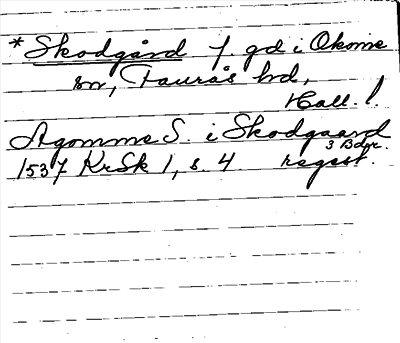 * Skodgård f. gd i Okome
sn, Faurås hd,
Hall. l.
Agomme S. i Skodgaard
3 Bdr.
1537 KrSk 1, s. 4 regest.